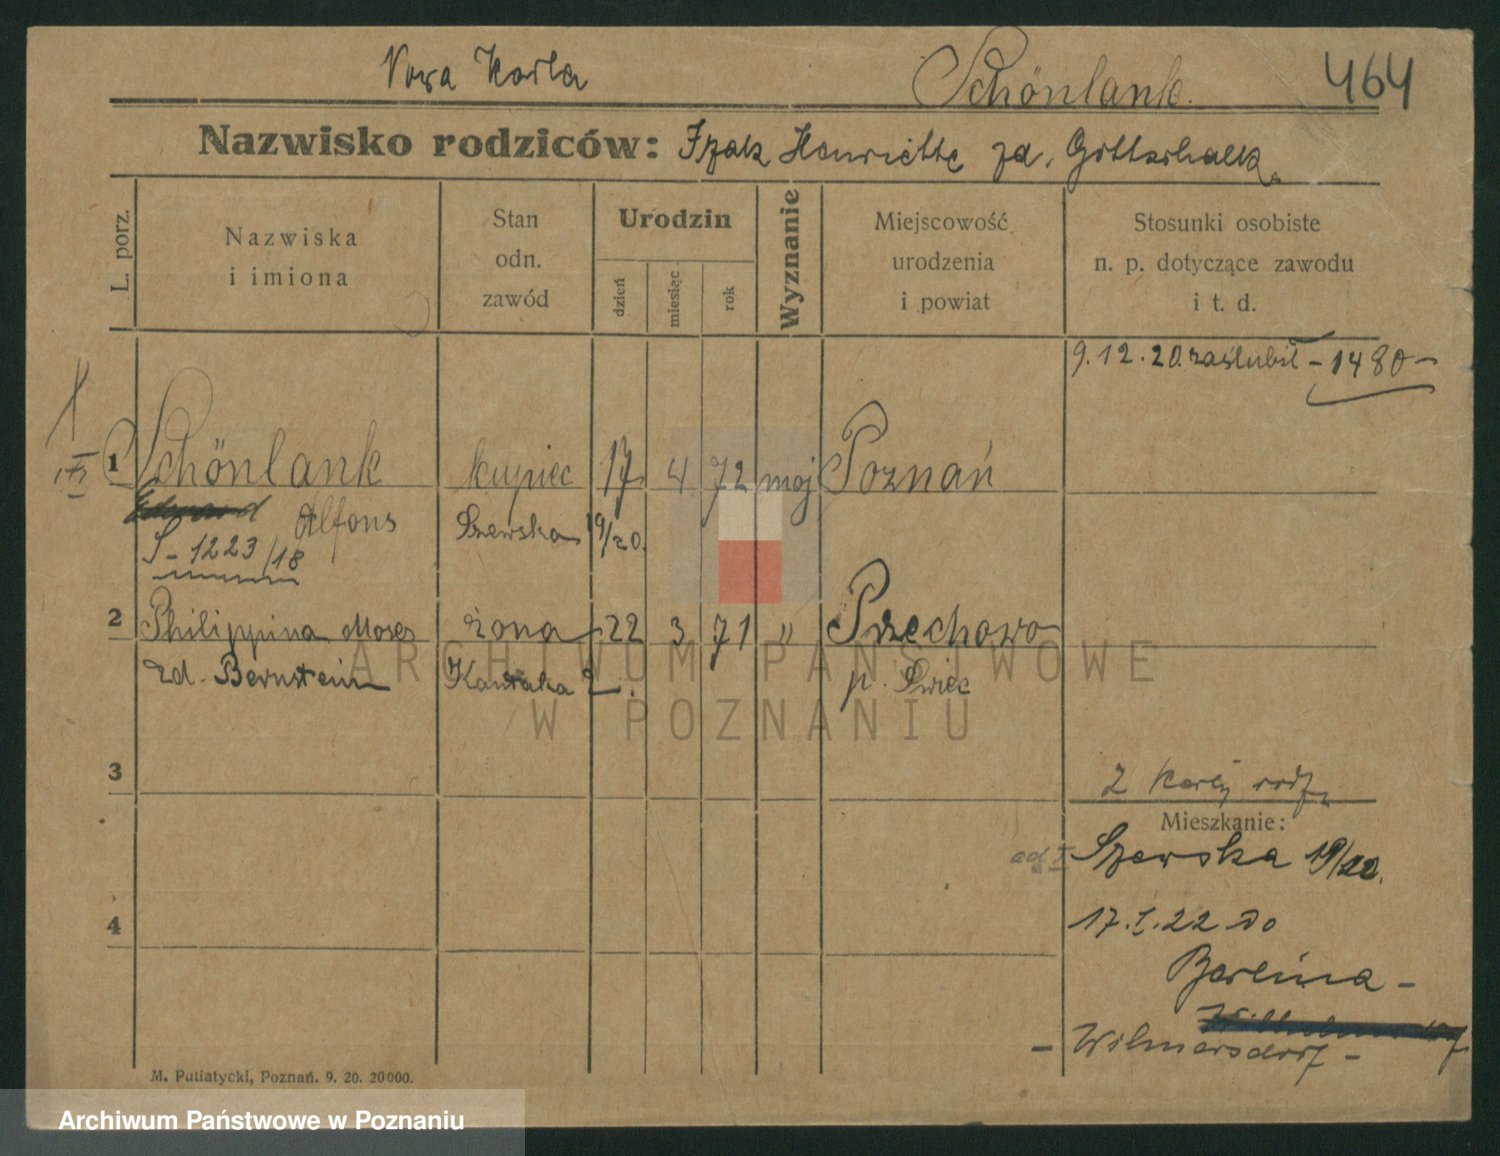 Nowa Karta
Schönlank.
464
Nazwisko rodziców: Izak Henriette zd. Gottschalk
L. porz.
Nazwiska
i imiona
Stan
odn.
zawód
Urodzin
dzień
miesiąc
rok
Wyznanie
Miejscowość
urodzenia
i powiat
Stosunki osobiste
n. p. dotyczące zawodu
i t. d.
9.12.20. zaślubił - 1480 -
1 Schönlank kupiec 17 4 72 moj Poznań
Alfons Szewska 19/20.
S-1223/18
2 Philippina Moses żona 22 3 71 " Przechowo
zd. Bernstein Kantaka 2. p. Świec
3
Z Karty rodz.
Mieszkanie:
ad I Szewska 19/20.
4
17.I.22 do
Berlina -
- Wilmersdorf -
M. Putiatycki, Poznań. 9. 20. 20000.
ARCHIWUM PAŃSTWOWE
W POZNANIU
Archiwum Państwowe w Poznaniu